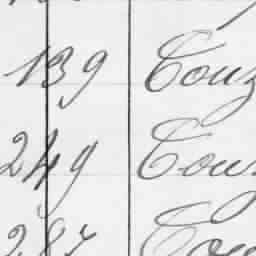 139 Couz
249 Cou
287 Cou